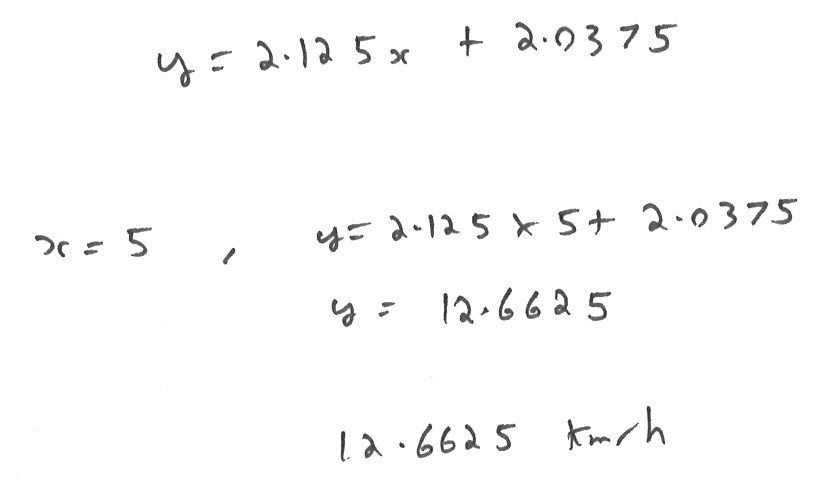 y = 2.125x + 2.0375
x = 5 , y = 2.125 x 5 + 2.0375
y = 12.6625
12.6625 km/h